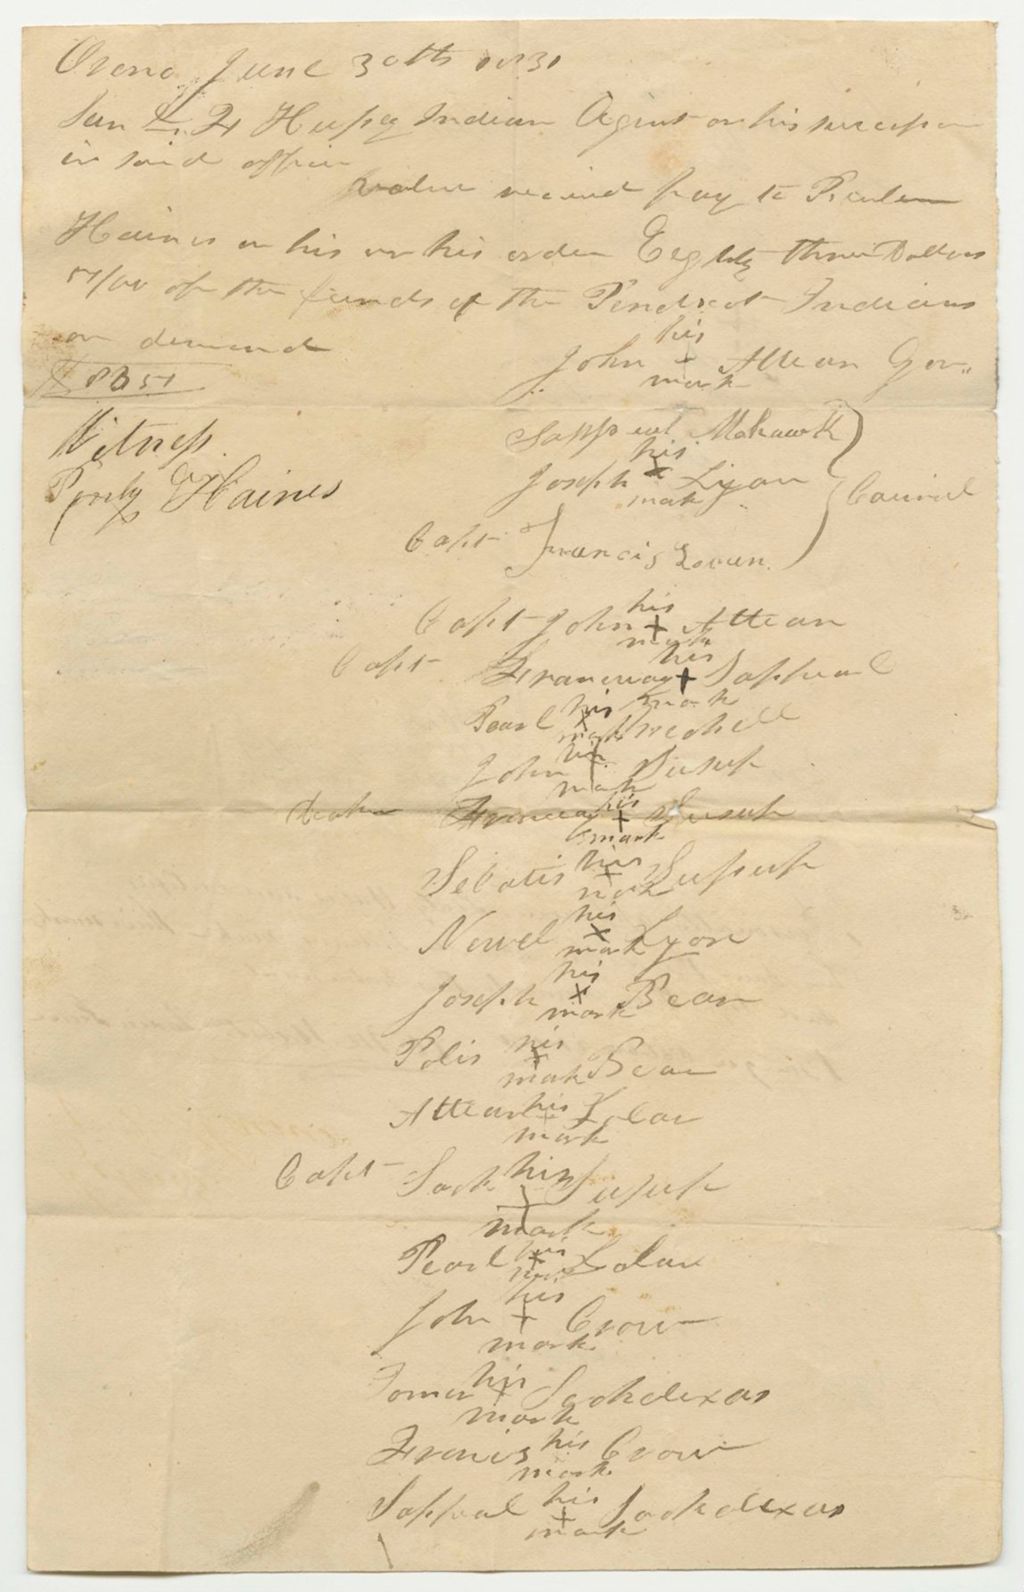 Orono June 30th 1831
Sam L. Hussey Indian Agent or his successor
in said office
value received pay to
Haines or his or his order Eighty three Dollars
51/00 of the funds of the Penobscot Indians
on demand
his
John + Attean Gov..
mark
$83 51
Witness.
Haines
Sappeal Mohawk
his
Joseph x Lyon
mark
Council
Capt Francis Loran
his
Capt John + Attean
mark
his
Capt Franceway + Sappeal
mark
his
Pearl x
mark
his
John + Susup
mark
his
Franceway + Susup
mark
his
Sebatis + Susup
mark
his
Newel x Lyon
mark
his
Joseph x Bean
mark
his
Polis x Bean
mark
his
Attean + Lolar
mark
his
Capt Sock + Susup
mark
his
Pearl x Lolar
his
John + Crow
mark
his
Tomer + Sockdexas
mark
his
Francis Crow
mark
his
Sappeal + Sockdexas
mark